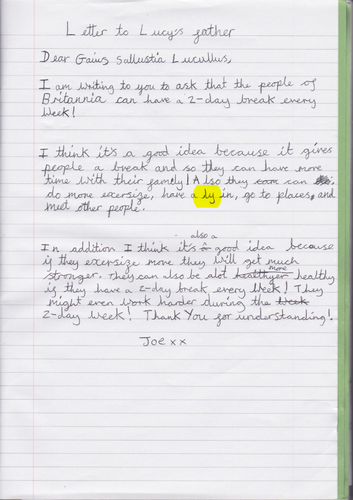 Letter to Lucys's father
Dear Gaius Sallustia Lucullus,
I am writing to you to ask that the people of
Britannia can have a 2-day break every
week!
I think it's a good idea because it gives
people a break and so they can have more
time with their family! Also they can
do more excersize, have a ly in, go to places, and
meet other people.
also a
In addition I think it's good idea because
if they excersize more they will get much
stronger. They can also be alot healthyer more healthy
if they have a 2-day break every week! They
might even work harder during the week
2-day week! Thank You for understanding!
Joe xx